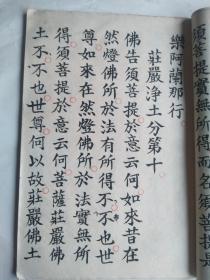 須菩提實無所得而名須菩提是
樂阿蘭那行
莊嚴淨土分第十
佛告須菩提於意云何如來昔在
然燈佛所於法有所得不不也世
尊如來在然燈佛所於法實無所
得須菩提於意云何菩薩莊嚴佛
土不不也世尊何以故莊嚴佛土